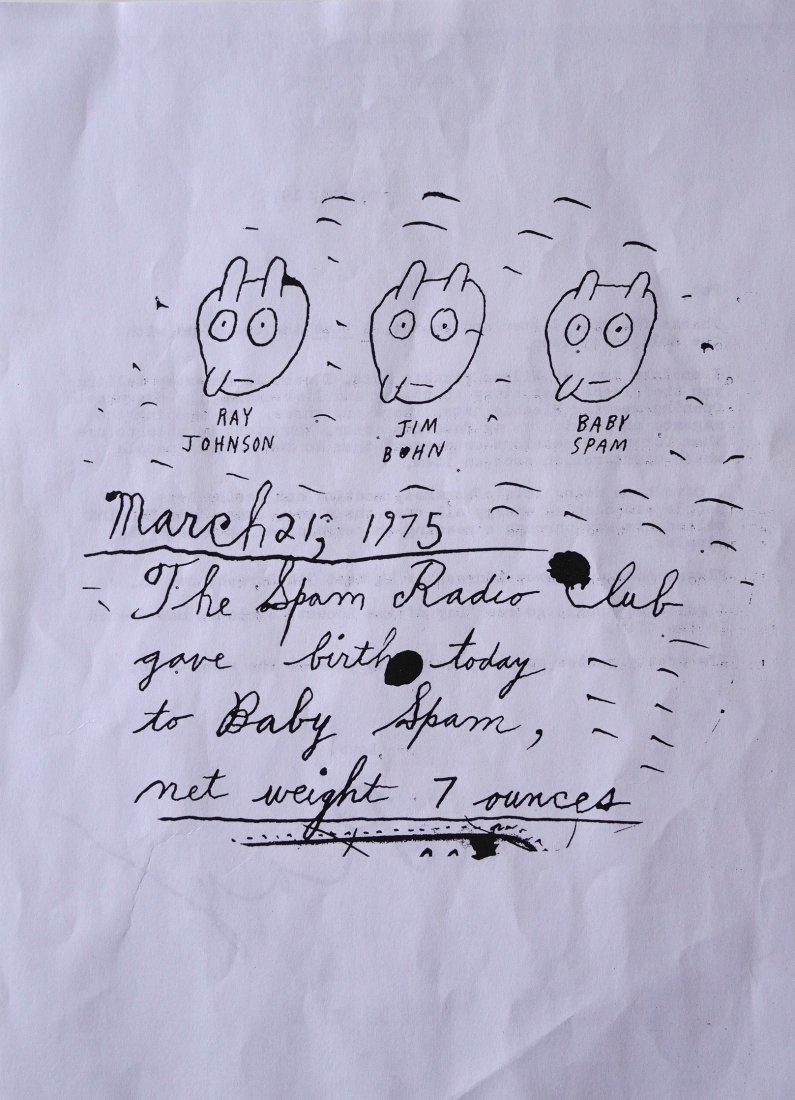 RAY JOHNSON
JIM BOHN
BABY SPAM
March 21, 1975
The Spam Radio Club
gave birth today
to Baby Spam,
net weight 7 ounces